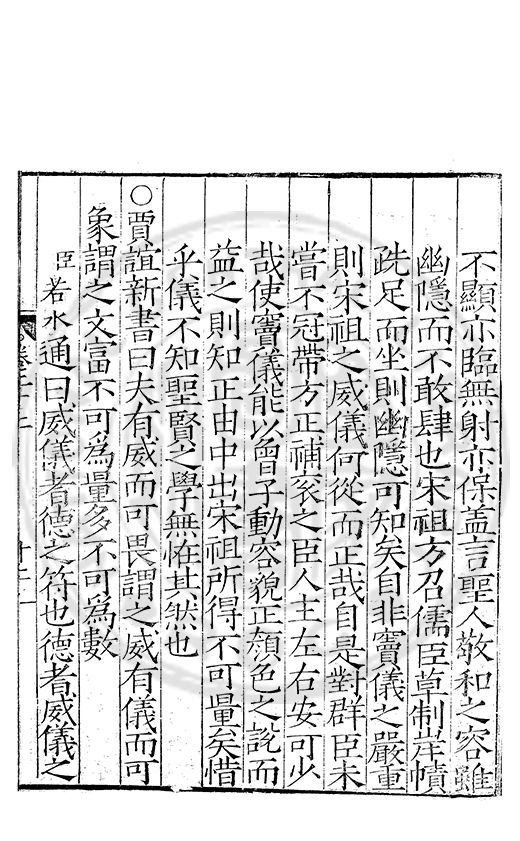 不顯亦臨無射亦保盖言聖人敬和之容雖
幽隱而不敢肆也宋祖方召儒臣草制岸幘
跣足而坐則幽隱可知矣自非竇儀之嚴重
則宋祖之威儀何從而正哉自是對群臣未
嘗不冠帶方正補衮之臣人主左右安可少
哉使竇儀能以曾子動容貌正顔色之說而
益之則知正由中出宋祖所得不可量矣惜
乎儀不知聖賢之學無恠其然也
○賈誼新書曰夫有威而可畏謂之威有儀而可
象謂之文富不可為量多不可為數
臣若水通曰威儀者德之符也德者威儀之